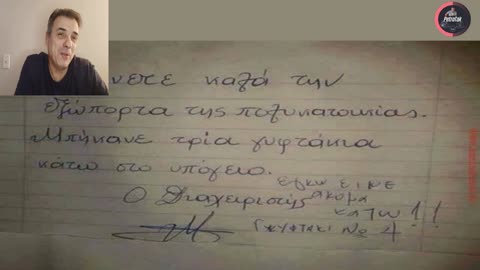 νετε καλά την
εξώπορτα της πολυκατοικίας.
Μπήκανε τρία γυφτάκια
κάτω στο υπόγειο.
εγκω ΕΙΜΕ
Ο Διαχειριστής ακομα
κατω!!
Γκυφτακι Νο 4